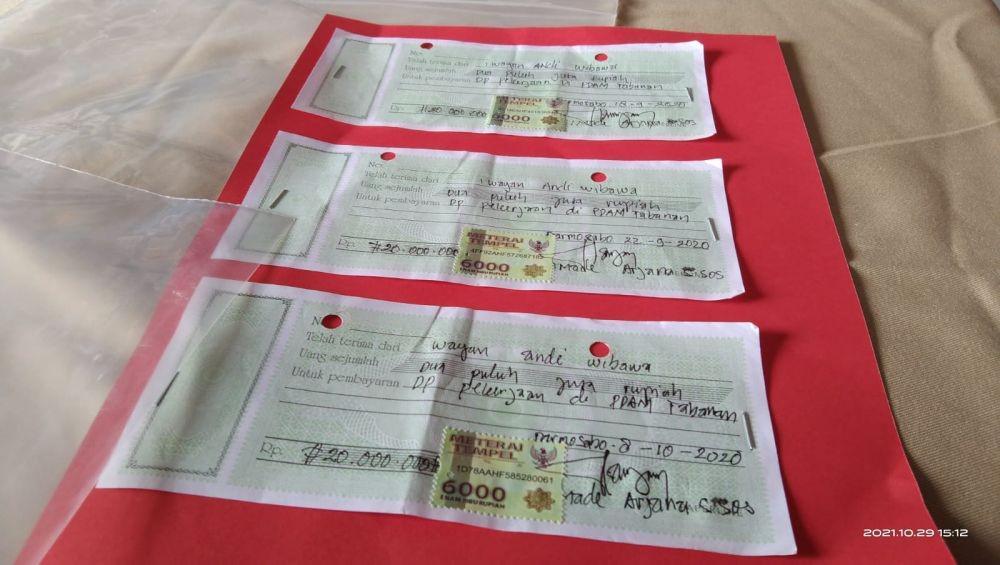 No:
Telah terima dari I wayan Andi Wibawa
Uang sejumlah Dua puluh juta rupiah
Untuk pembayaran DP pekerjaan di PDAM Tabanan
METERAI
TEMPEL
6000
Rp. #20.000.000
Darmosabo 18-9-2020
Made Arjana S.SOS
No:
Telah terima dari I wayan Andi Wibawa
Uang sejumlah Dua puluh juta rupiah
Untuk pembayaran DP pekerjaan di PDAM Tabanan
Darmosabo 22-9-2020
Rp. #20.000.000
METERAI
TEMPEL
6000
ENAM RIBU RUPIAH
Made Arjana S.SOS
Telah terima dari wayan andi wibawa
Uang sejumlah Dua puluh juta rupiah
Untuk pembayaran DP pekerjaan di PDAM Tabanan
Darmosabo-2-10-2020
Rp. #20.000.000#
METERAI
TEMPEL
1D78AAHF585280061
6000
ENAM RIBU RUPIAH
Made Arjana S.SOS
2021.10.29 15:12